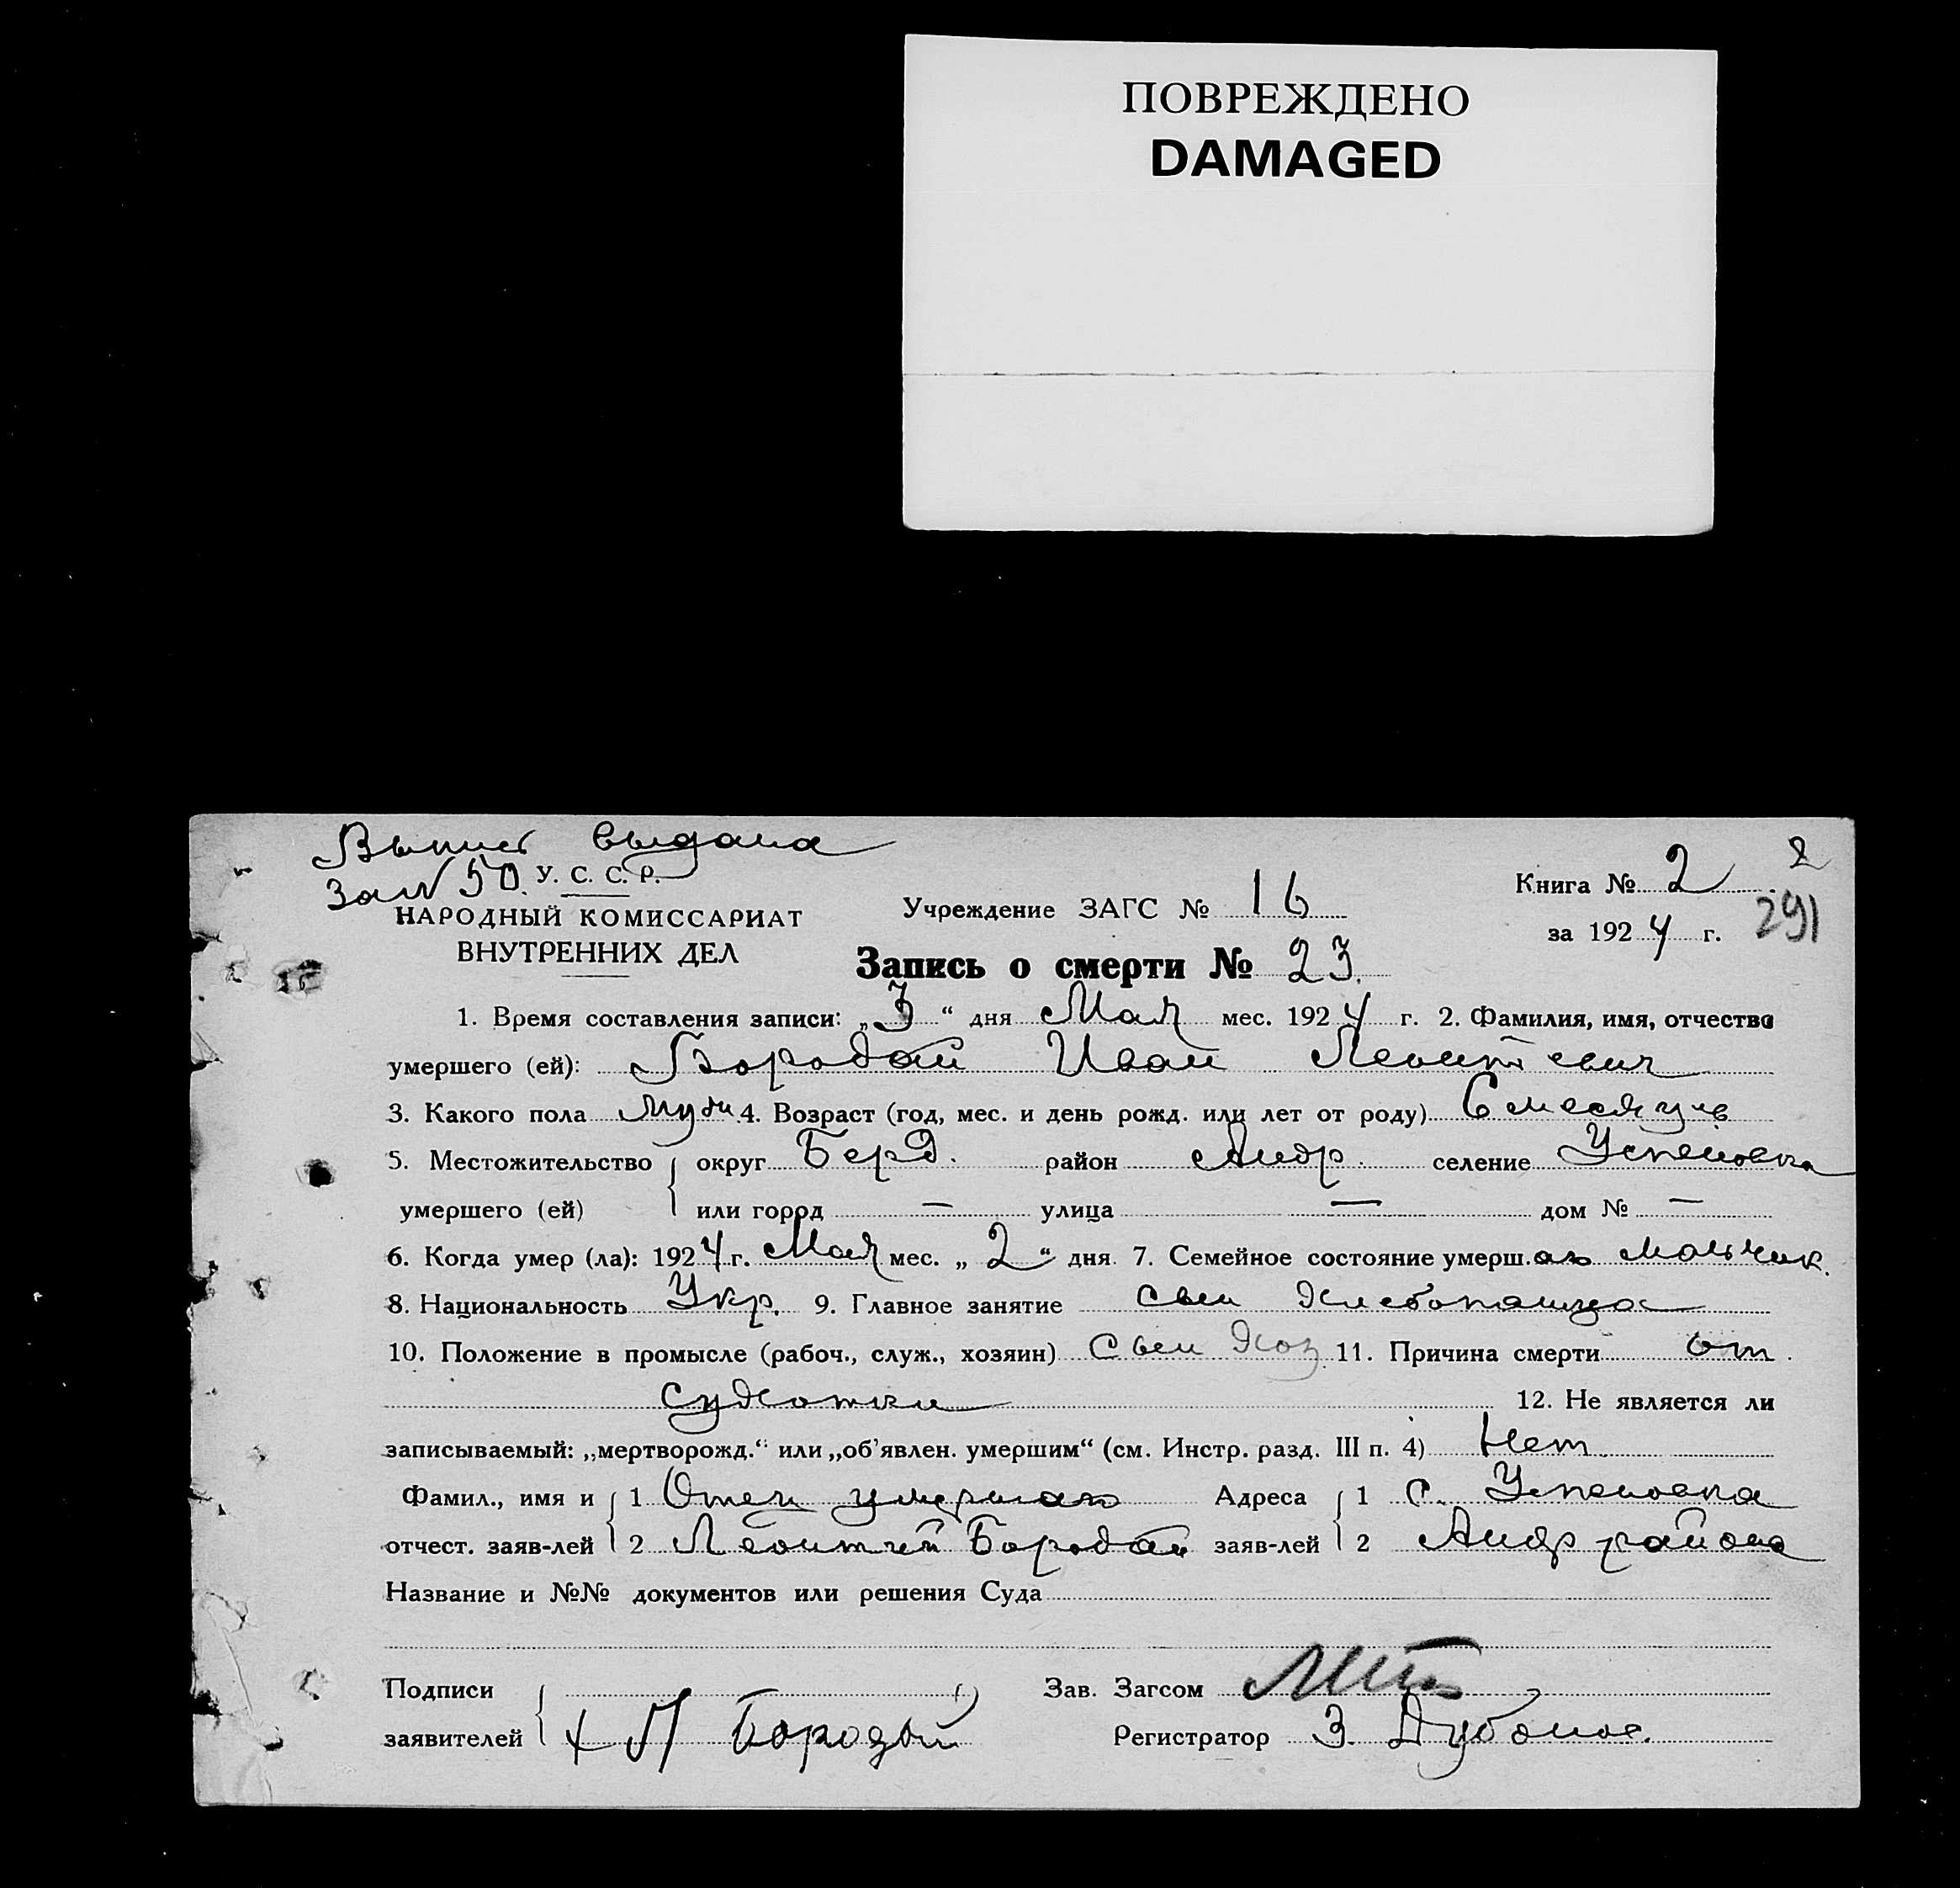 ПОВРЕЖДЕНО
DAMAGED
Выпись выдана
за № 50.
У. С. С. Р.
НАРОДНЫЙ КОМИССАРИАТ
ВНУТРЕННИХ ДЕЛ
Учреждение ЗАГС № 16
Книга № 2
2
за 1924 г.
291
Запись о смерти № 23.
1. Время составления записи: „3“ дня Мая мес. 1924 г. 2. Фамилия, имя, отчество
умершего (ей): Бородай Иван Леонтиевич
3. Какого пола 4. Возраст (год, мес. и день рожд. или лет от роду) 6 месяцев
5. Местожительство округ Берд. район Андр. селение Успеновка
умершего (ей) или город — улица — дом № —
6. Когда умер (ла): 1924 г. Мая мес. „2“ дня. 7. Семейное состояние умерш.аго мальчик.
8. Национальность Укр. 9. Главное занятие сын хлебопашца
10. Положение в промысле (рабоч., служ., хозяин) Сын хоз 11. Причина смерти от
сухотки 12. Не является ли
записываемый: „мертворожд.“ или „об'явлен. умершим“ (см. Инстр. разд. III п. 4) Нет
Фамил., имя и 1 Отец умершаго Адреса 1 с. Успеновка
отчест. заяв-лей 2 Леонтий Бородай заяв-лей 2 Андр района
Название и №№ документов или решения Суда
Подписи Зав. Загсом
заявителей Л Бородай Регистратор З.